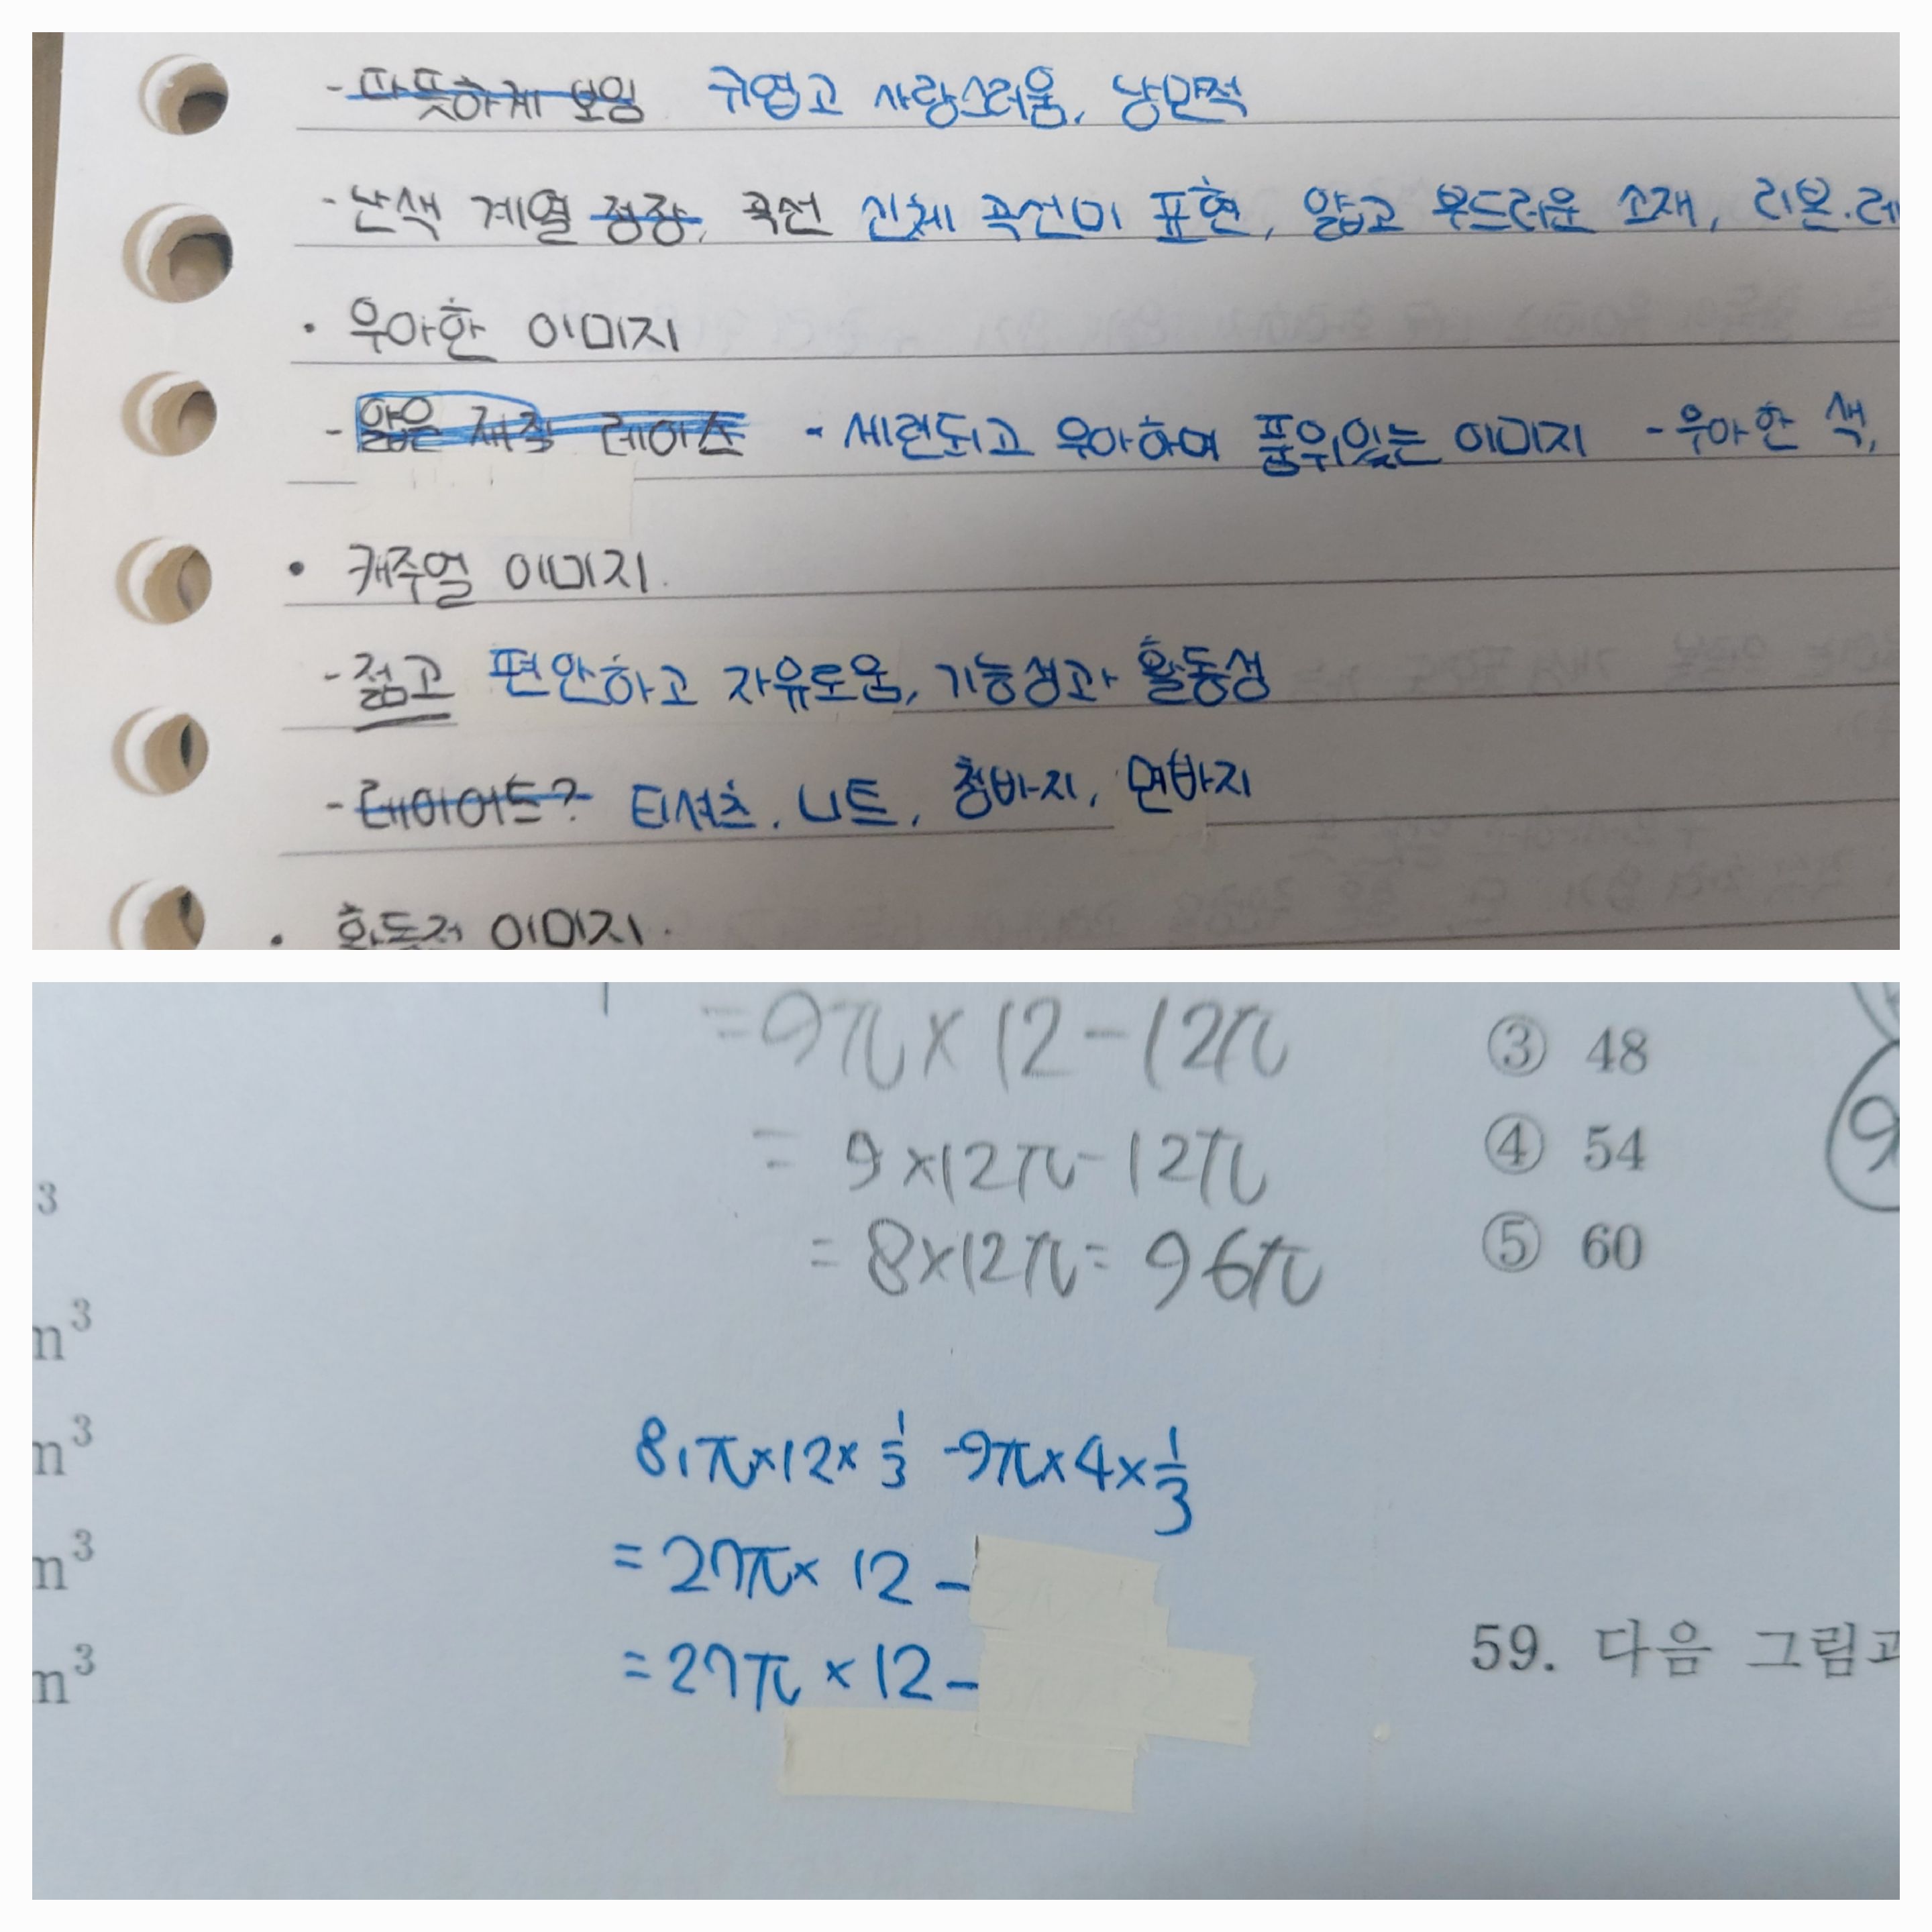 - 따뜻하게 보임 귀엽고 사랑스러움, 낭만적
- 난색 계열 정장, 곡선 신체 곡선미 표현, 얇고 부드러운 소재, 리본.레
• 우아한 이미지
- 얇은 재질 레이스 - 세련되고 우아하며 품위있는 이미지 - 우아한 색,
• 캐주얼 이미지.
- 젊고 편안하고 자유로움, 기능성과 활동성
- 레이어드? 티셔츠, 니트, 청바지, 면바지
• 활동적 이미지.
=9π×12-12π
= 9×12π-12π
= 8×12π= 96π
③ 48
④ 54
⑤ 60
9
3
m³
m³
m³
m³
81π×12×1/3 -9π×4×1/3
=27π×12-
=27π×12-
59. 다음 그림과